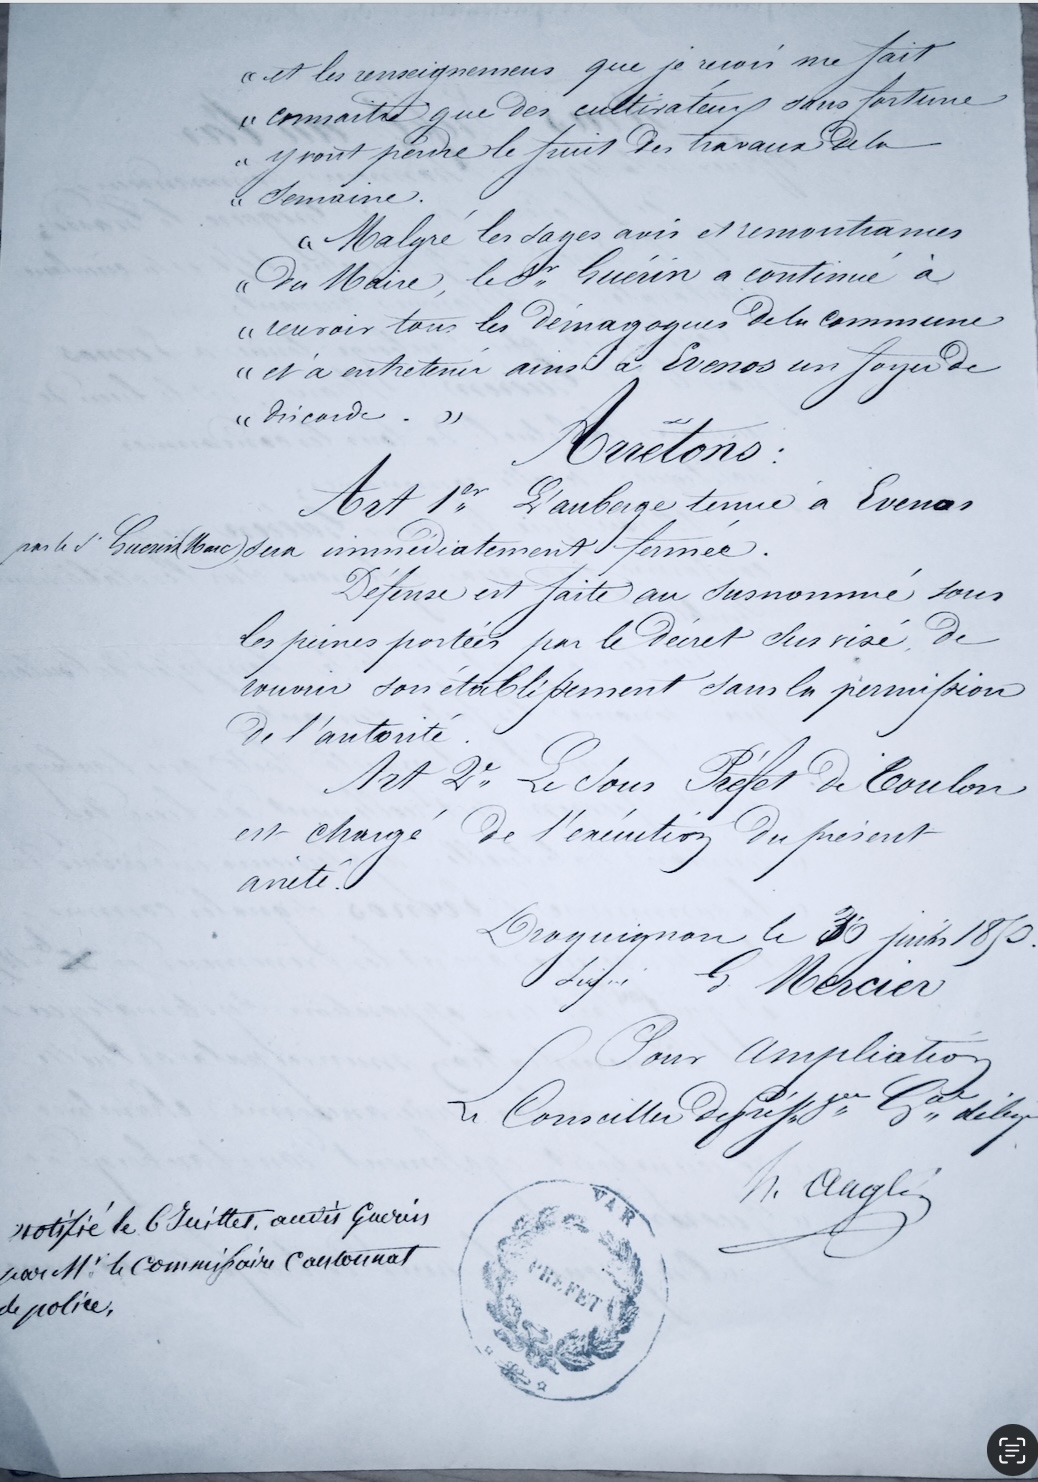 « et les renseignemens que je reçois me fait
« connaitre que des cultivateurs sans fortune
« y vont perdre le fruit des travaux de la
« Semaine.
« Malgré les sages avis et remontrances
« du Maire, le Sr Guérin a continué à
« recevoir tous les démagogues de la commune
« et à entretenir ainsi à Evenos un foyer de
« discorde. »
Arrêtons :
Art 1er L'auberge tenue à Evenos
par le Sr Guerin (Marc) sera immédiatement fermée.
Défense est faite au susnommé sous
les peines portées par le décret sus visé, de
rouvrir son établissement sans la permission
de l'autorité.
Art 2e Le Sous Préfet de Toulon
est chargé de l'exécution du présent
arrêté.
Draguignan le 30 juin 1850.
Signé G Mercier
Pour Ampliation
Le Conseiller de préfre Gal délég
notifié le 6 Juillet, audit Guerin
par Mr le Commissaire Cantonnal
de police,
VAR
PREFET